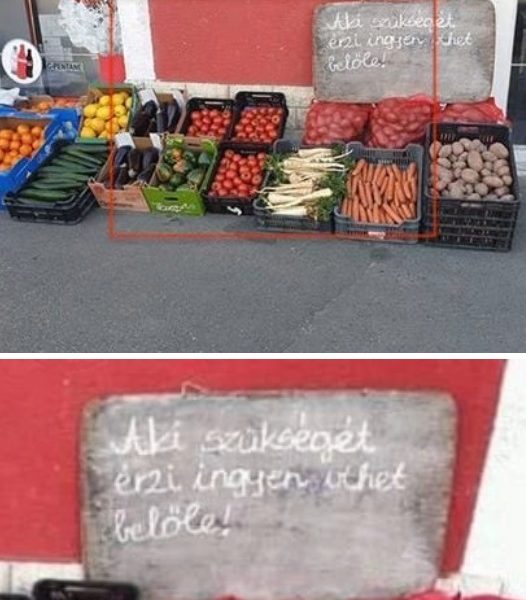 Aki szükségét
érzi ingyen vihet
belőle!
Aki szükségét
érzi ingyen vihet
belőle!